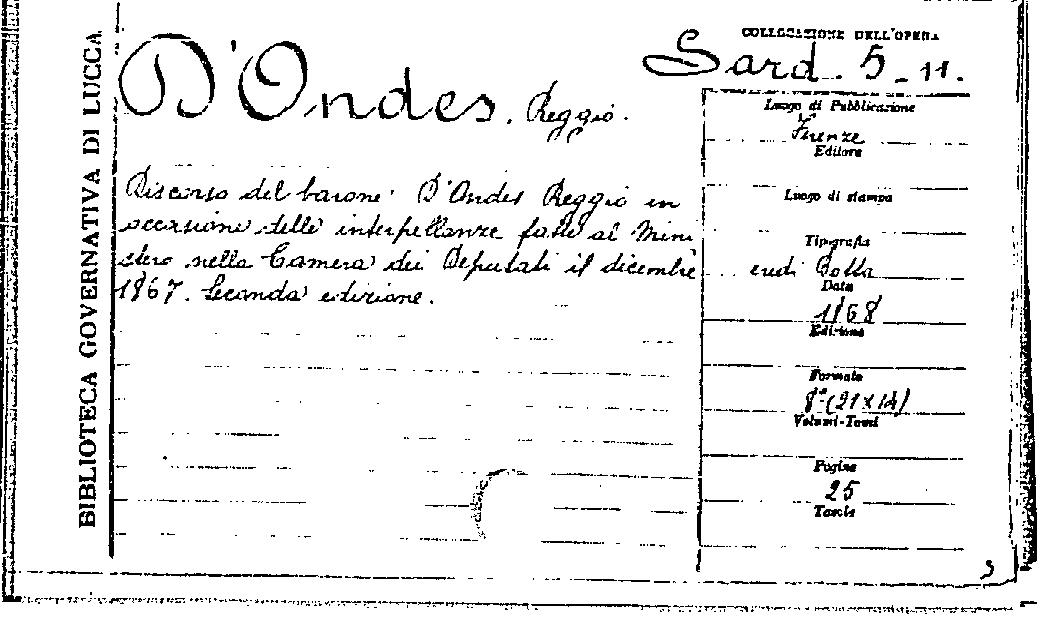 BIBLIOTECA GOVERNATIVA DI LUCCA
D'Ondes. Reggio.
Discorso del barone D'Ondes Reggio in
occasione delle interpellanze fatte al Mini
stero nella Camera dei Deputati il dicembre
1867. Seconda edizione.
COLLOCAZIONE DELL'OPERA
Sard. 5-11.
Luogo di Pubblicazione
Firenze
Editore
Luogo di stampa
Tipografia
eredi Botta
Data
1868
Edizione
Formato
8° (21x14)
Volumi-Tomi
Pagine
25
Tavole